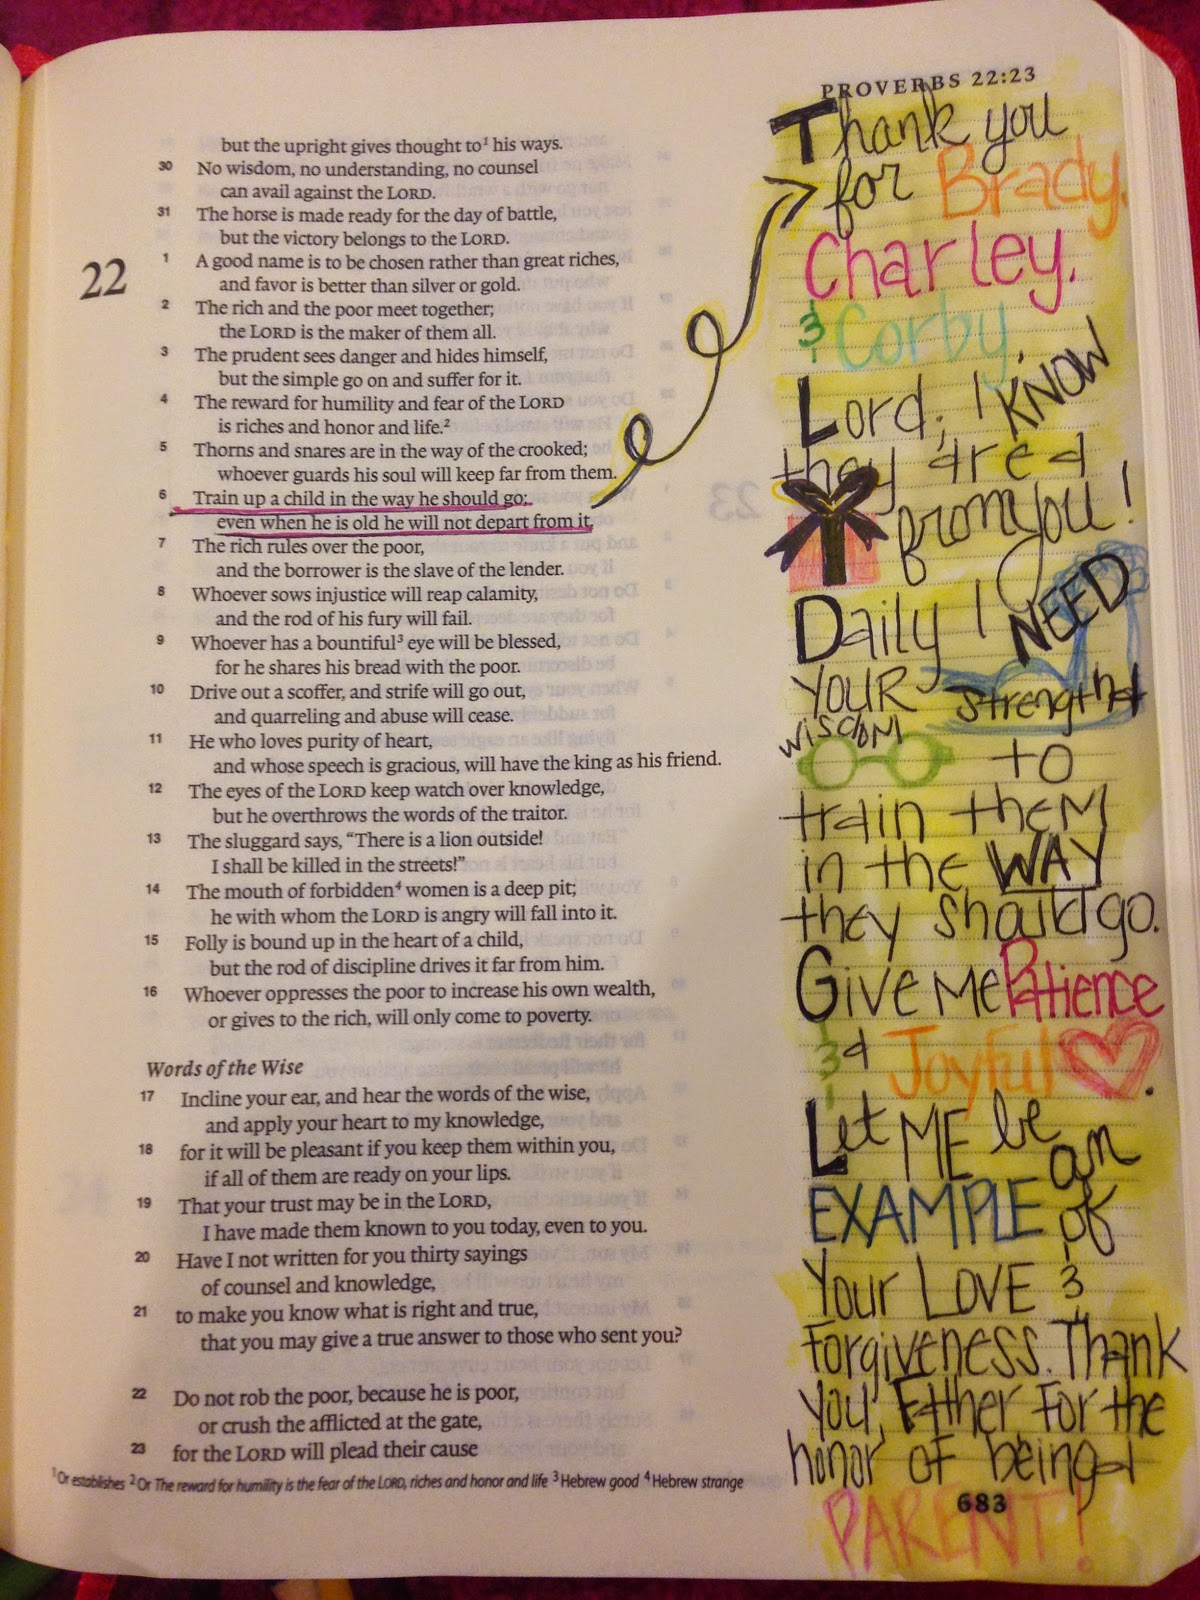 PROVERBS 22:23
but the upright gives thought to¹ his ways.
30 No wisdom, no understanding, no counsel
can avail against the LORD.
31 The horse is made ready for the day of battle,
but the victory belongs to the LORD.
22 1 A good name is to be chosen rather than great riches,
and favor is better than silver or gold.
2 The rich and the poor meet together;
the LORD is the maker of them all.
3 The prudent sees danger and hides himself,
but the simple go on and suffer for it.
4 The reward for humility and fear of the LORD
is riches and honor and life.²
5 Thorns and snares are in the way of the crooked;
whoever guards his soul will keep far from them.
6 Train up a child in the way he should go;
even when he is old he will not depart from it.
7 The rich rules over the poor,
and the borrower is the slave of the lender.
8 Whoever sows injustice will reap calamity,
and the rod of his fury will fail.
9 Whoever has a bountiful³ eye will be blessed,
for he shares his bread with the poor.
10 Drive out a scoffer, and strife will go out,
and quarreling and abuse will cease.
11 He who loves purity of heart,
and whose speech is gracious, will have the king as his friend.
12 The eyes of the LORD keep watch over knowledge,
but he overthrows the words of the traitor.
13 The sluggard says, “There is a lion outside!
I shall be killed in the streets!”
14 The mouth of forbidden⁴ women is a deep pit;
he with whom the LORD is angry will fall into it.
15 Folly is bound up in the heart of a child,
but the rod of discipline drives it far from him.
16 Whoever oppresses the poor to increase his own wealth,
or gives to the rich, will only come to poverty.
Words of the Wise
17 Incline your ear, and hear the words of the wise,
and apply your heart to my knowledge,
18 for it will be pleasant if you keep them within you,
if all of them are ready on your lips.
19 That your trust may be in the LORD,
I have made them known to you today, even to you.
20 Have I not written for you thirty sayings
of counsel and knowledge,
21 to make you know what is right and true,
that you may give a true answer to those who sent you?
22 Do not rob the poor, because he is poor,
or crush the afflicted at the gate,
23 for the LORD will plead their cause
¹ Or establishes ² Or The reward for humility is the fear of the LORD, riches and honor and life ³ Hebrew good ⁴ Hebrew strange
Thank you
for Brady,
Charley,
& Corby,
Lord; I KNOW
they are a
from you!
Daily I NEED
YOUR strength &
wisdom
to
train them
in the WAY
they should go.
Give Me Patience
& a Joyful
Let ME be an
EXAMPLE of
Your LOVE &
Forgiveness. Thank
You, Father for the
honor of being a
683
PARENT!